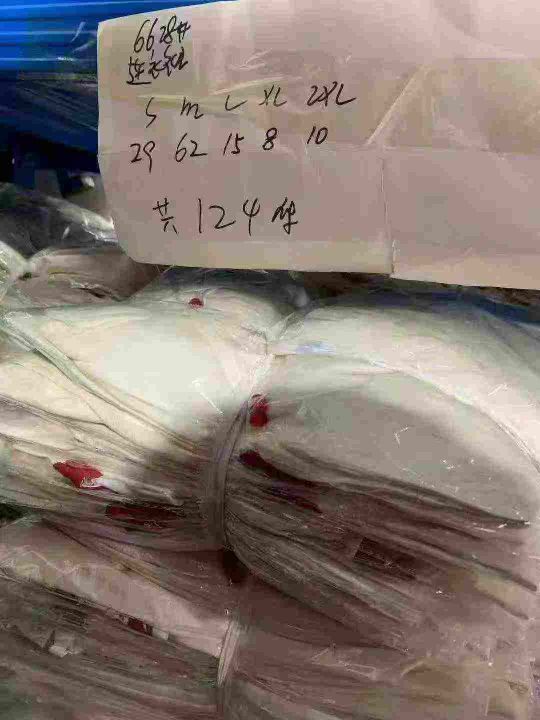 6628#
连衣裙
S M L XL 2XL
29 62 15 8 10
共124件